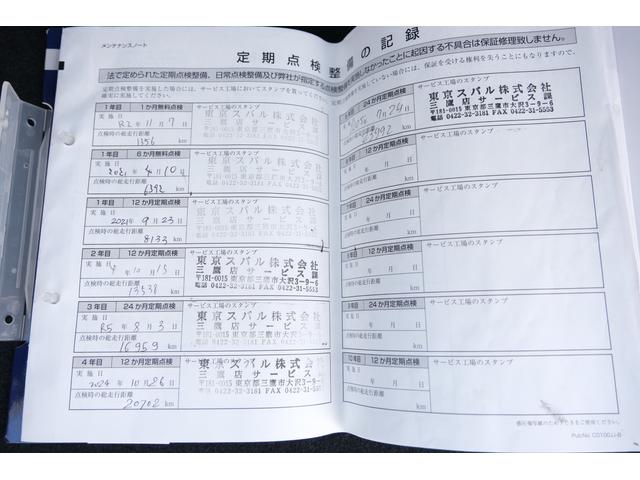 メンテナンスノート
定期点検整備の記録
法で定められた定期点検整備、日常点検整備及び弊社が指定する点検整備
しなかったことに起因する不具合は保証修理致しません。
定期点検整備を実施した場合には、サービス工場においてスタンプを買ってください。
していない場合には、保証を受ける権利を失うこともありますので、
確実に実施してください。
1年目 1か月無料点検
サービス工場のスタンプ
実施日
R2年 11月 7日
点検時の総走行距離
1356 km
東京スバル株式会社
三鷹店サービス課
〒181-0015 東京都三鷹市大沢3-9-6
電話 0422-32-3181 FAX 0422-31-5553
1年目 6か月無料点検
サービス工場のスタンプ
実施日
2021年 4月 10日
点検時の総走行距離
6392 km
東京スバル株式会社
三鷹店サービス課
〒181-0015 東京都三鷹市大沢3-9-6
電話 0422-32-3181 FAX 0422-31-5553
1年目 12か月定期点検
サービス工場のスタンプ
実施日
2021年 9月 23日
点検時の総走行距離
8133 km
東京スバル株式会社
三鷹店サービス課
〒181-0015 東京都三鷹市大沢3-9-6
電話 0422-32-3181 FAX 0422-31-5553
2年目 12か月定期点検
サービス工場のスタンプ
実施日
点検時の総走行距離
13538 km
東京スバル株式会社
三鷹店サービス課
〒181-0015 東京都三鷹市大沢3-9-6
電話 0422-32-3181 FAX 0422-31-5553
3年目 24か月定期点検
サービス工場のスタンプ
実施日
R5年 8月 3日
点検時の総走行距離
16959 km
東京スバル株式会社
三鷹店サービス課
〒181-0015 東京都三鷹市大沢3-9-6
電話 0422-32-3181 FAX 0422-31-5553
4年目 12か月定期点検
サービス工場のスタンプ
実施日
2024年 10月 26日
点検時の総走行距離
20702 km
東京スバル株式会社
三鷹店サービス課
〒181-0015 東京都三鷹市大沢3-9-6
電話 0422-32-3181 FAX 0422-31-5553
24か月定期点検
サービス工場のスタンプ
24日
km
東京スバル株式会社
三鷹店サービス課
〒181-0015 東京都三鷹市大沢3-9-6
電話 0422-32-3181 FAX 0422-31-5553
12か月定期点検
サービス工場のスタンプ
年 月 日
km
24か月定期点検
サービス工場のスタンプ
年 月 日
km
12か月定期点検
サービス工場のスタンプ
年 月 日
点検時の総走行距離
km
24か月定期点検
サービス工場のスタンプ
実施日
年 月 日
点検時の総走行距離
km
10年目 12か月定期点検
サービス工場のスタンプ
実施日
年 月 日
点検時の総走行距離
km